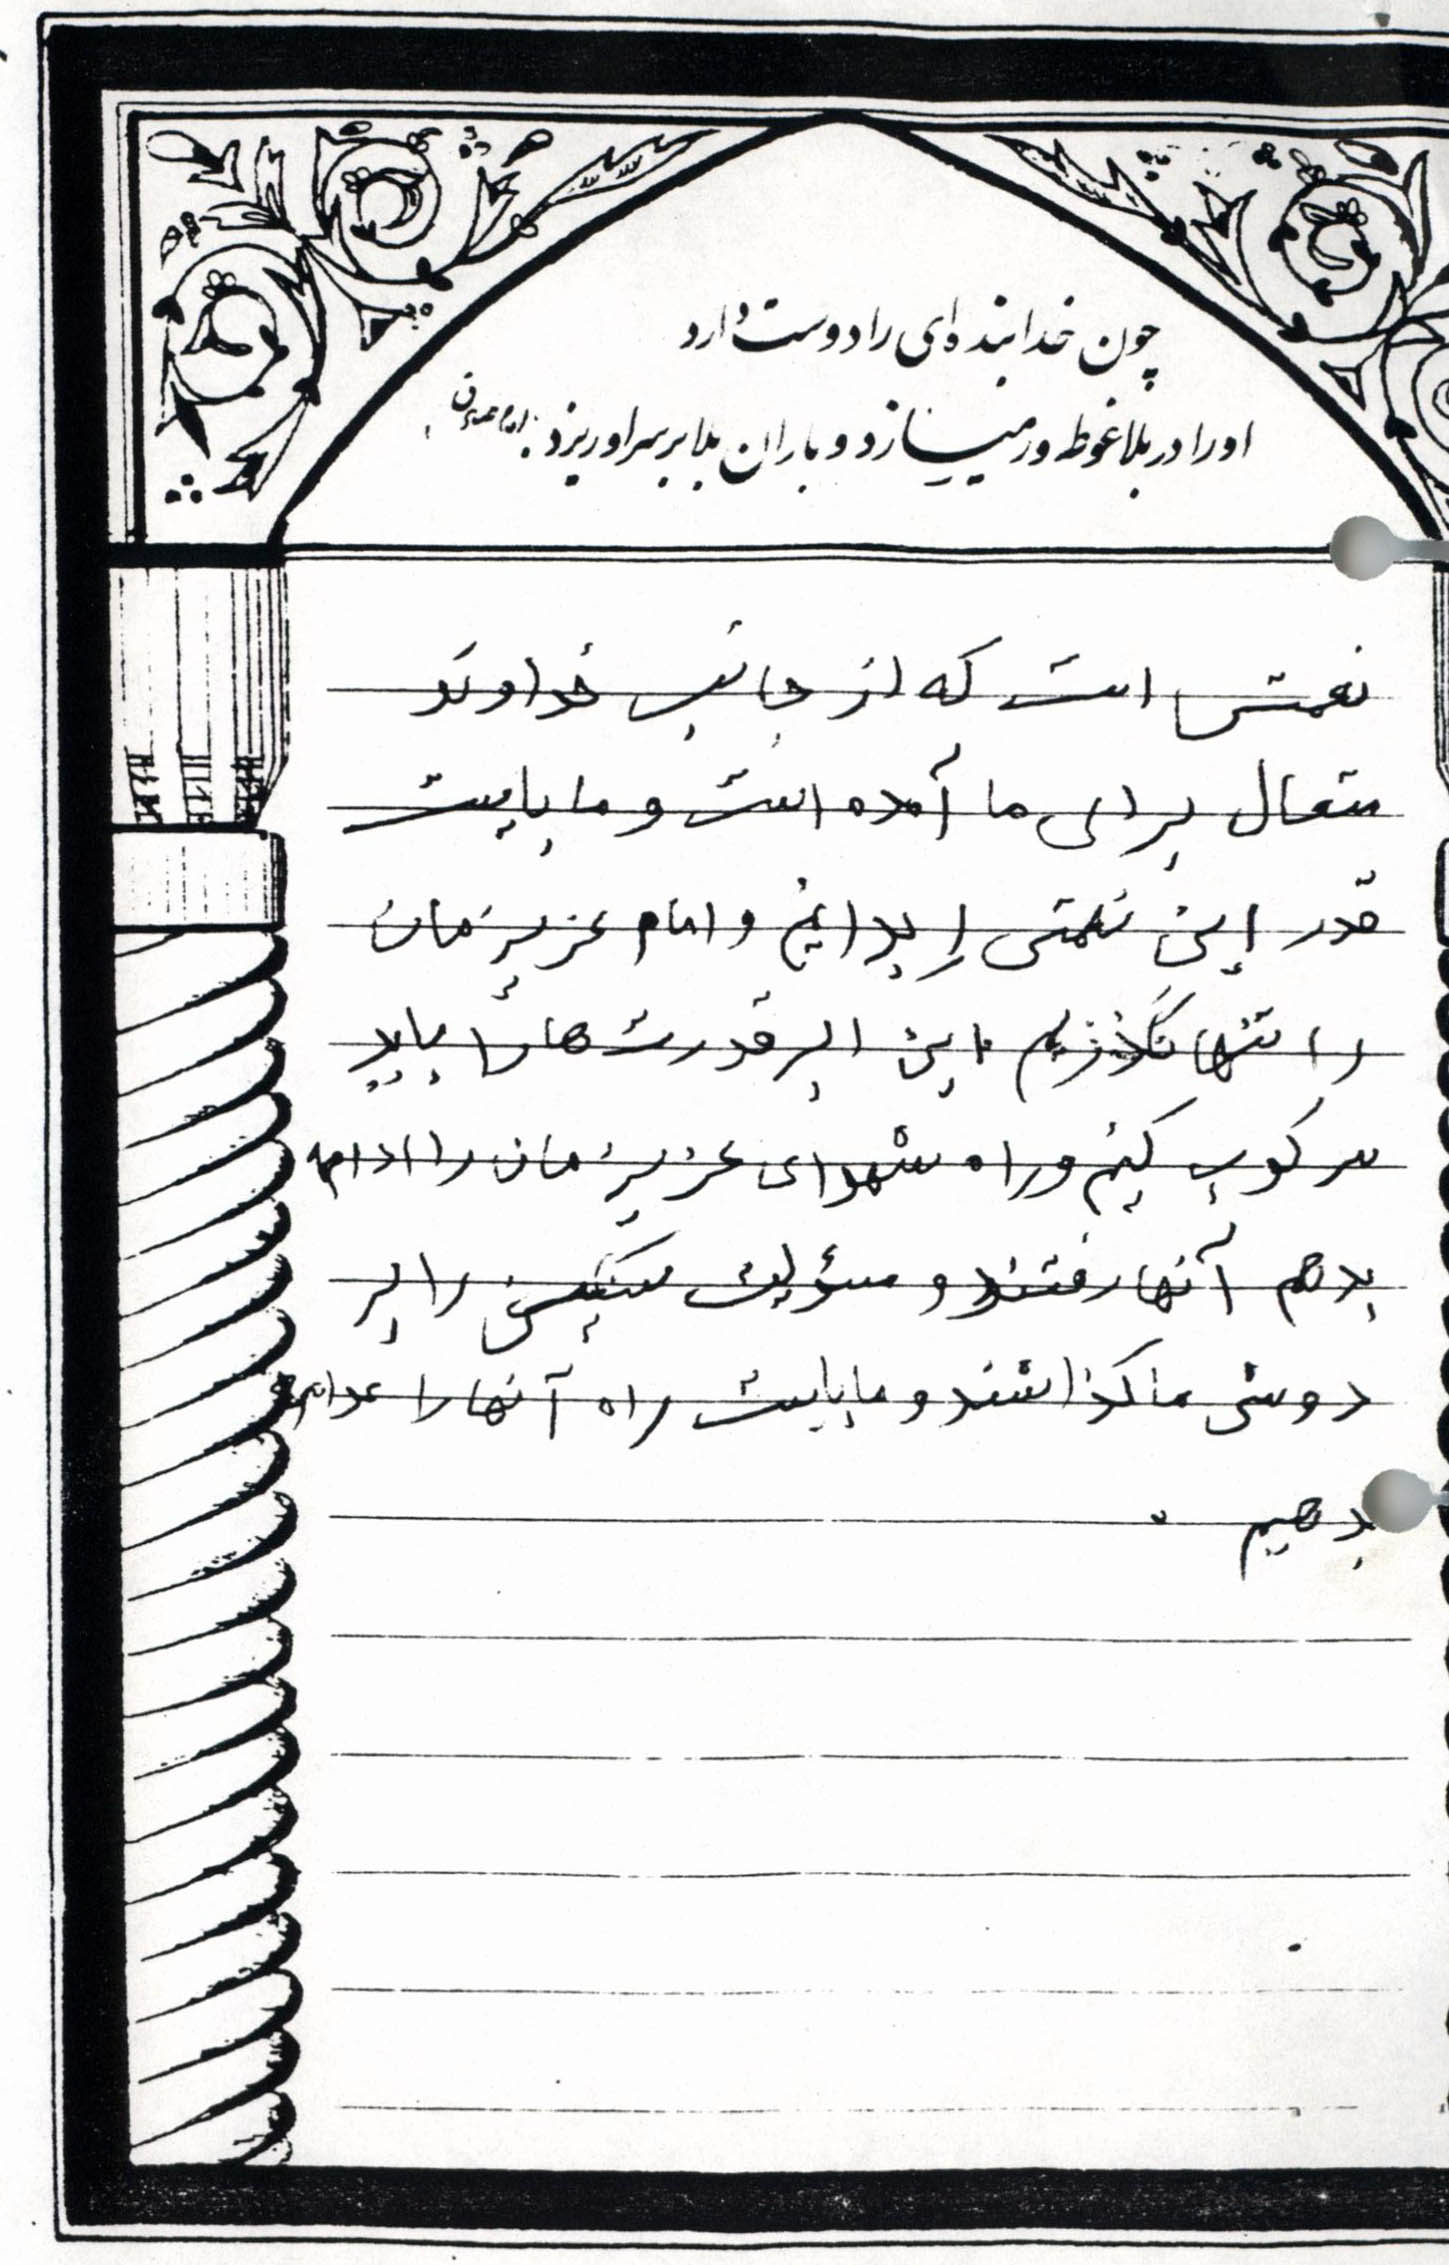 چون خدا بنده‌ای را دوست دارد
او را در بلا غوطه ور میسازد و باران بلا بر سر او ریزد. امام صادق
نعمتی است که از جانب خداوند
متعال برای ما آمده است و ما بایست
قدر این نعمتی را بدانیم و امام عزیزمان
را تنها نگذزیم این ابر قدرت ها را باید
سرکوب کنیم و راه شهدای عزیزمان را ادامه
بدهم آنها رفتند و مسؤلیت سنگینی را بر
دوش ما گذاشتند و ما بایست راه آنها را
بدهیم .